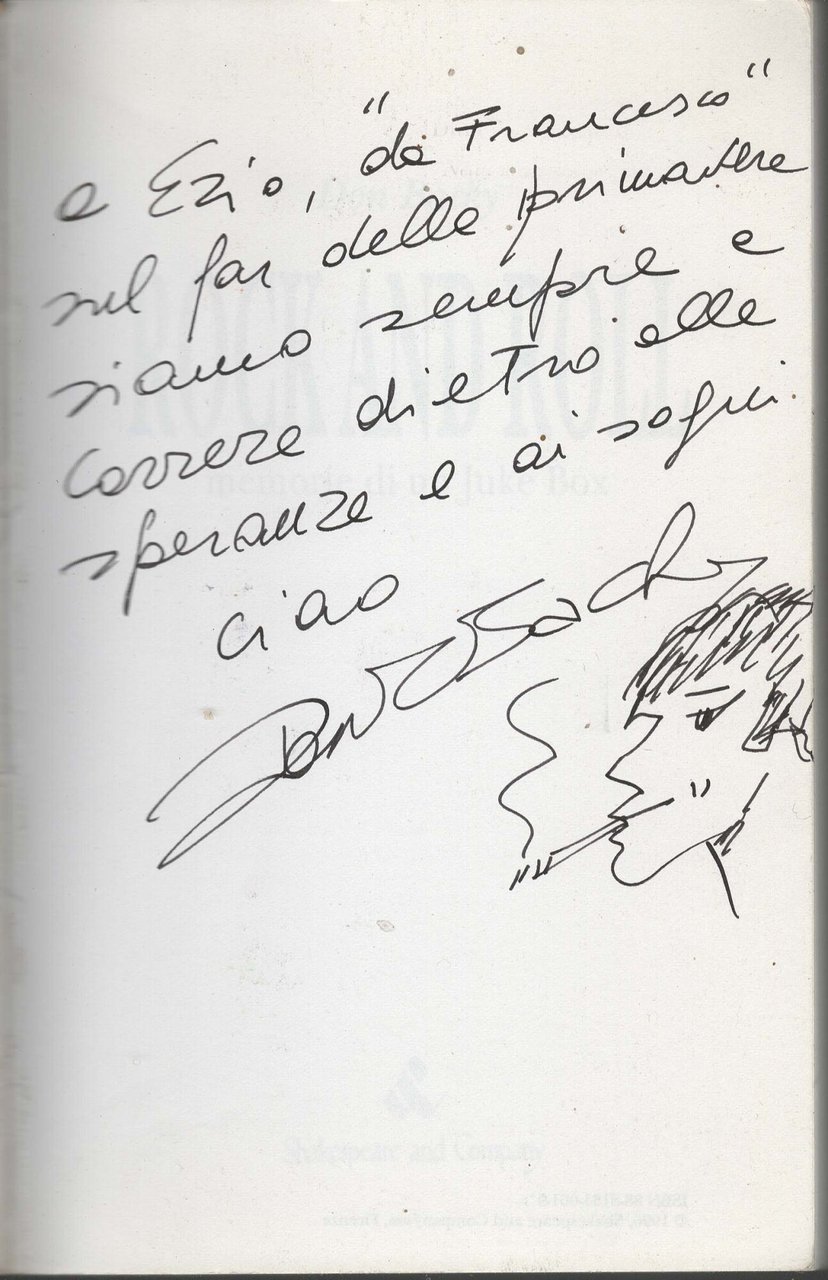 a Ezio, "da Francesco"
sul far delle primavere
siamo sempre a
correre dietro alle
speranze e ai sogni
ciao
Don Backy
ROCK AND ROLL
memorie di un Juke Box
Shakespeare and Company